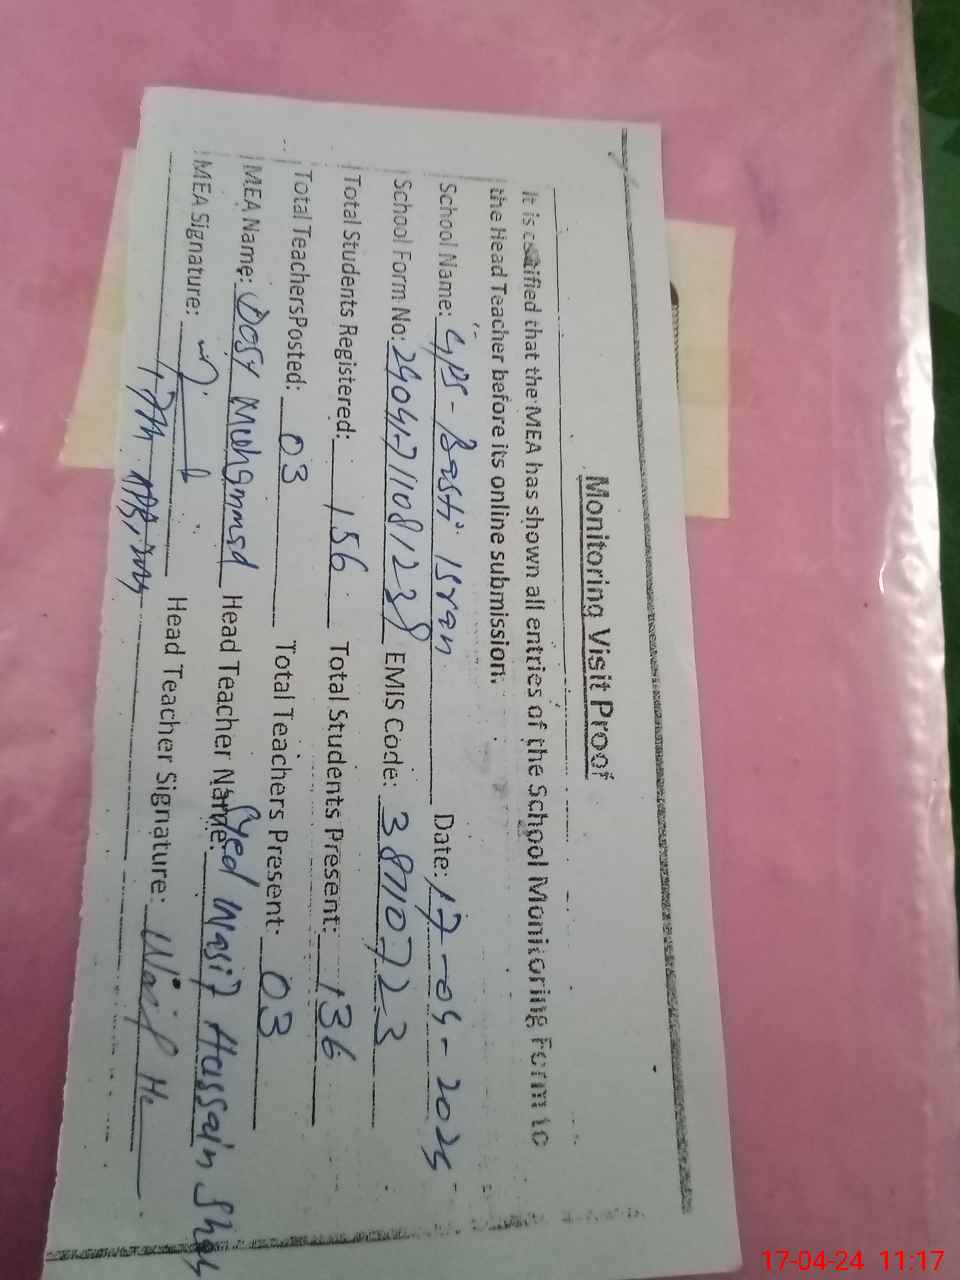 Monitoring Visit Proof
It is certified that the MEA has shown all entries of the School Monitoring Form to
the Head Teacher before its online submission.
School Name: GPS - Basti Isran Date: 17-04-2024
School Form No: 240417110812 38 EMIS Code: 38110723
Total Students Registered: 156 Total Students Present: 136
Total TeachersPosted: 03 Total Teachers Present: 03
MEA Name: Dost Muhammad Head Teacher Name: Syed Wasif Hassain Shah
MEA Signature: Head Teacher Signature: Wasif H
17-04-24 11:17